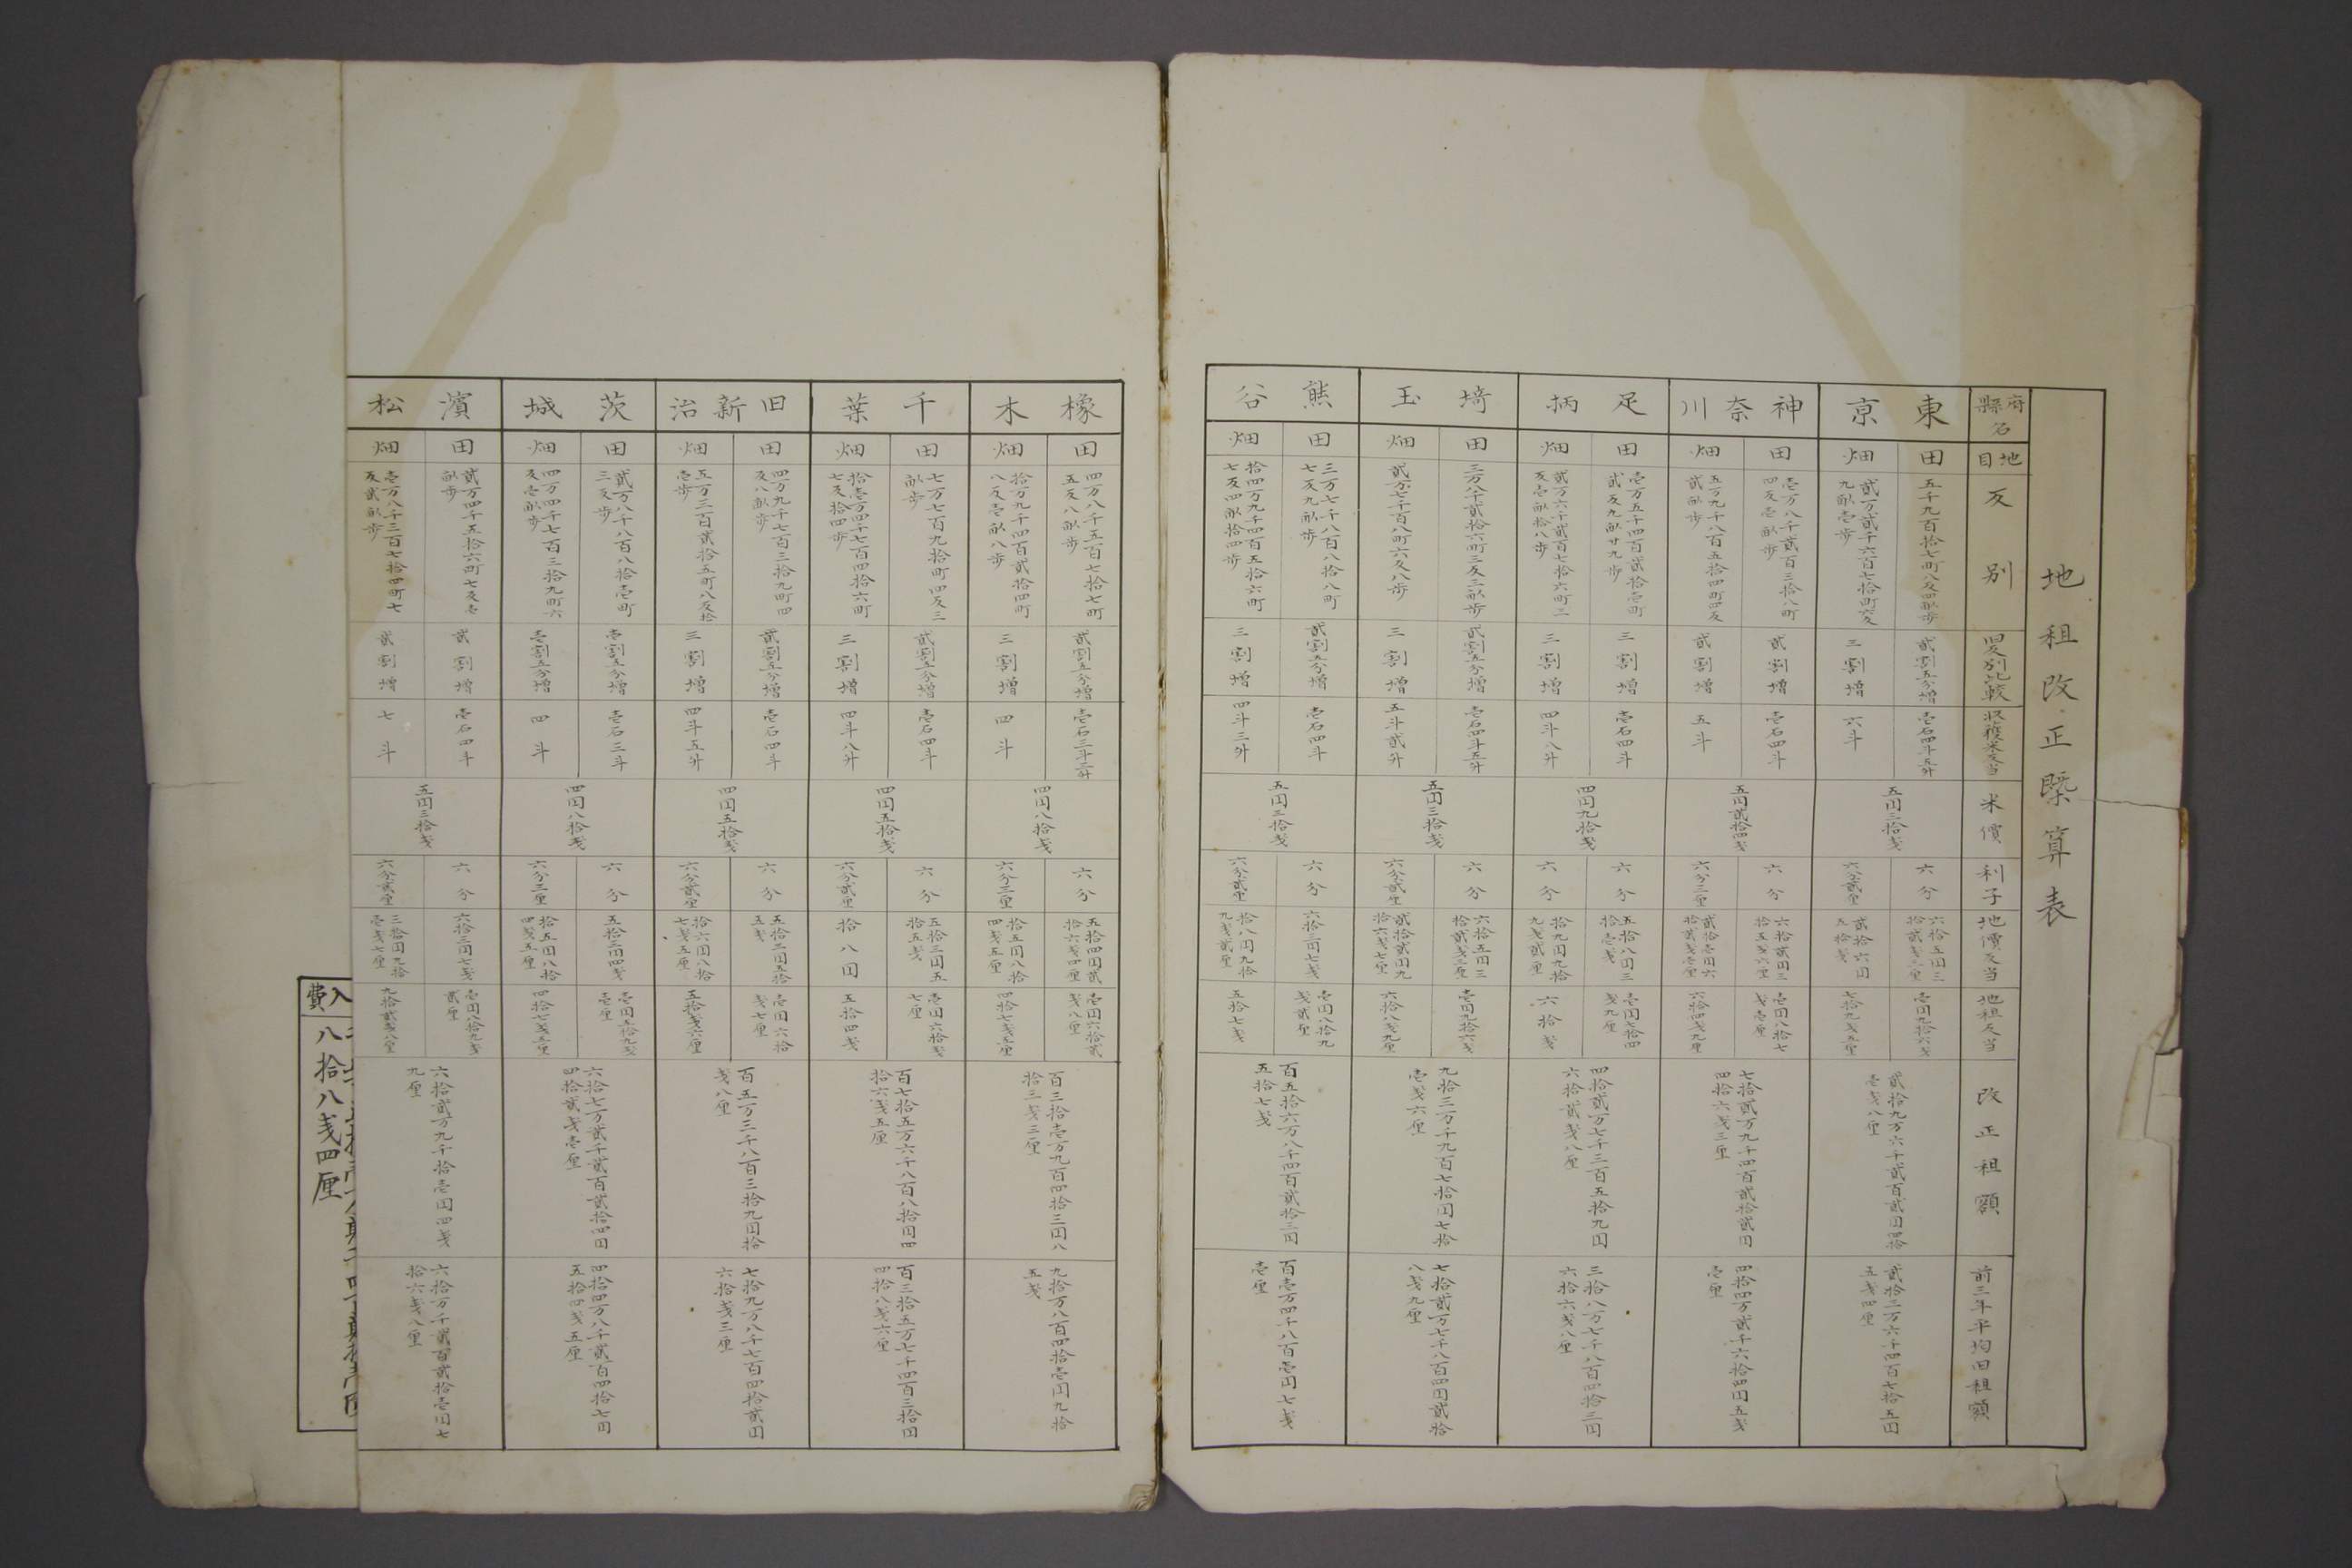 地租改正槩算表
府縣名
地目
反別
旧反別比較
収穫米反当
米價
利子
地價反当
地租反当
改正租額
前三年平均旧租額
東京
田
五千九百拾七町八反四畝歩
貳割五分増
壱石四斗五升
六分
六拾五円三
拾貳戔三厘
壱円九拾六戔
畑
貳万貳千六百七拾町反
九畝壱歩
三割増
六斗
六分貳厘
貳拾六円
五拾戔
七拾九戔五厘
五円三拾戔
貳拾九万六千貳百貳円拾
壱戔八厘
貳拾三万六千四百七拾五円
五戔四厘
神奈川
田
壱万八千貳百三拾八町
四反壱畝歩
貳割増
壱石四斗
六分
六拾貳円三
拾五戔六厘
壱円八拾七
戔壱厘
畑
五万九千八百五拾四町四反
貳畝歩
貳割増
五斗
六分三厘
貳拾壱円六
拾貳戔壱厘
六拾四戔九厘
五円貳拾戔
七拾貳万九千四百貳拾貳円
四拾六戔三厘
四拾四万貳千六拾四円五戔
壱厘
足柄
田
壱万五千四百貳拾壱町
貳反九畝廿九歩
三割増
壱石四斗
六分
五拾八円三
拾壱戔
壱円七拾四
戔九厘
畑
貳万六千貳百七拾六町三
反壱畝拾八歩
三割増
四斗八升
六分
拾九円九拾
九戔貳厘
六拾戔
四円九拾戔
四拾貳万七千三百五拾九円
六拾貳戔八厘
三拾八万七千八百四拾三円
六拾六戔八厘
埼玉
田
三万八千貳拾六町三反三畝歩
貳割五分増
壱石四斗五升
六分
六拾五円三
拾貳戔三厘
壱円九拾六戔
畑
貳万七千百八町六反八歩
三割増
五斗貳升
六分貳厘
貳拾貳円九
拾六戔七厘
六拾八戔九厘
五円三拾戔
九拾三万千九百七拾円七拾
壱戔六厘
七拾貳万七千八百四円貳拾
八戔九厘
熊谷
田
三万七千八百八拾八町
七反九畝歩
貳割五分増
壱石四斗
六分
六拾三円七戔
壱円八拾九
戔貳厘
畑
拾四万九千四百五拾六町
七反四畝拾四歩
三割増
四斗三升
六分貳厘
拾八円九拾
九戔貳厘
五拾七戔
五円三拾戔
百五拾六万八千四百貳拾三円
五拾七戔
百壱万四千八百壱円七戔
壱厘
橡木
田
四万八千五百七拾七町
五反八畝歩
貳割五分増
壱石三斗三升
六分
五拾四円貳
拾六戔四厘
壱円六拾貳
戔八厘
畑
拾万九千四百貳拾四町
八反壱畝八歩
三割増
四斗
六分三厘
拾五円八拾
四戔五厘
四拾七戔五厘
四円八拾戔
百三拾壱万九百四拾三円八
拾三戔三厘
九拾万八百四拾壱円九拾
五戔
千葉
田
七万七百九拾町四反三
畝歩
貳割五分増
壱石四斗
六分
五拾三円五
拾五戔
壱円六拾戔
七厘
畑
拾壱万四千七百四拾六町
七反拾四歩
三割増
四斗八升
六分貳厘
拾八円
五拾四戔
四円五拾戔
百七拾五万六千八百八拾四
拾六戔五厘
百三拾五万七千四百三拾円
四拾八戔六厘
旧新治
田
四万九千七百三拾九町四
反八畝歩
貳割五分増
壱石四斗
六分
五拾三円五拾
五戔
壱円六拾
戔七厘
畑
五万三百貳拾五町八反拾
壱歩
三割増
四斗五升
六分貳厘
拾六円八拾
七戔五厘
五拾戔六厘
四円五拾戔
百五万三千八百三拾九円拾
戔八厘
七拾九万八千七百四拾貳円
六拾戔三厘
茨城
田
貳万八千八百八拾壱町
三反歩
壱割五分増
壱石三斗
六分
五拾三円四戔
壱円五拾九戔
壱厘
畑
四万四千七百三拾九町六
反壱畝歩
壱割五分増
四斗
六分三厘
拾五円八拾
四戔五厘
四拾七戔五厘
四円八拾戔
六拾七万貳千貳百貳拾四円
四拾貳戔壱厘
四拾四万八千貳百四拾七円
五拾四戔五厘
濱松
田
貳万四千五拾六町七反壱
畝歩
貳割増
壱石四斗
六分
六拾三円七戔
壱円八拾九戔
貳厘
畑
壱万八千三百七拾四町七
反貳畝歩
貳割増
七斗
六分貳厘
三拾円九拾
壱戔七厘
九拾貳戔八厘
五円三拾戔
六拾貳万九千拾壱円四戔
九厘
六拾万千貳百貳拾壱円七
拾六戔八厘
入費
八拾八戔四厘